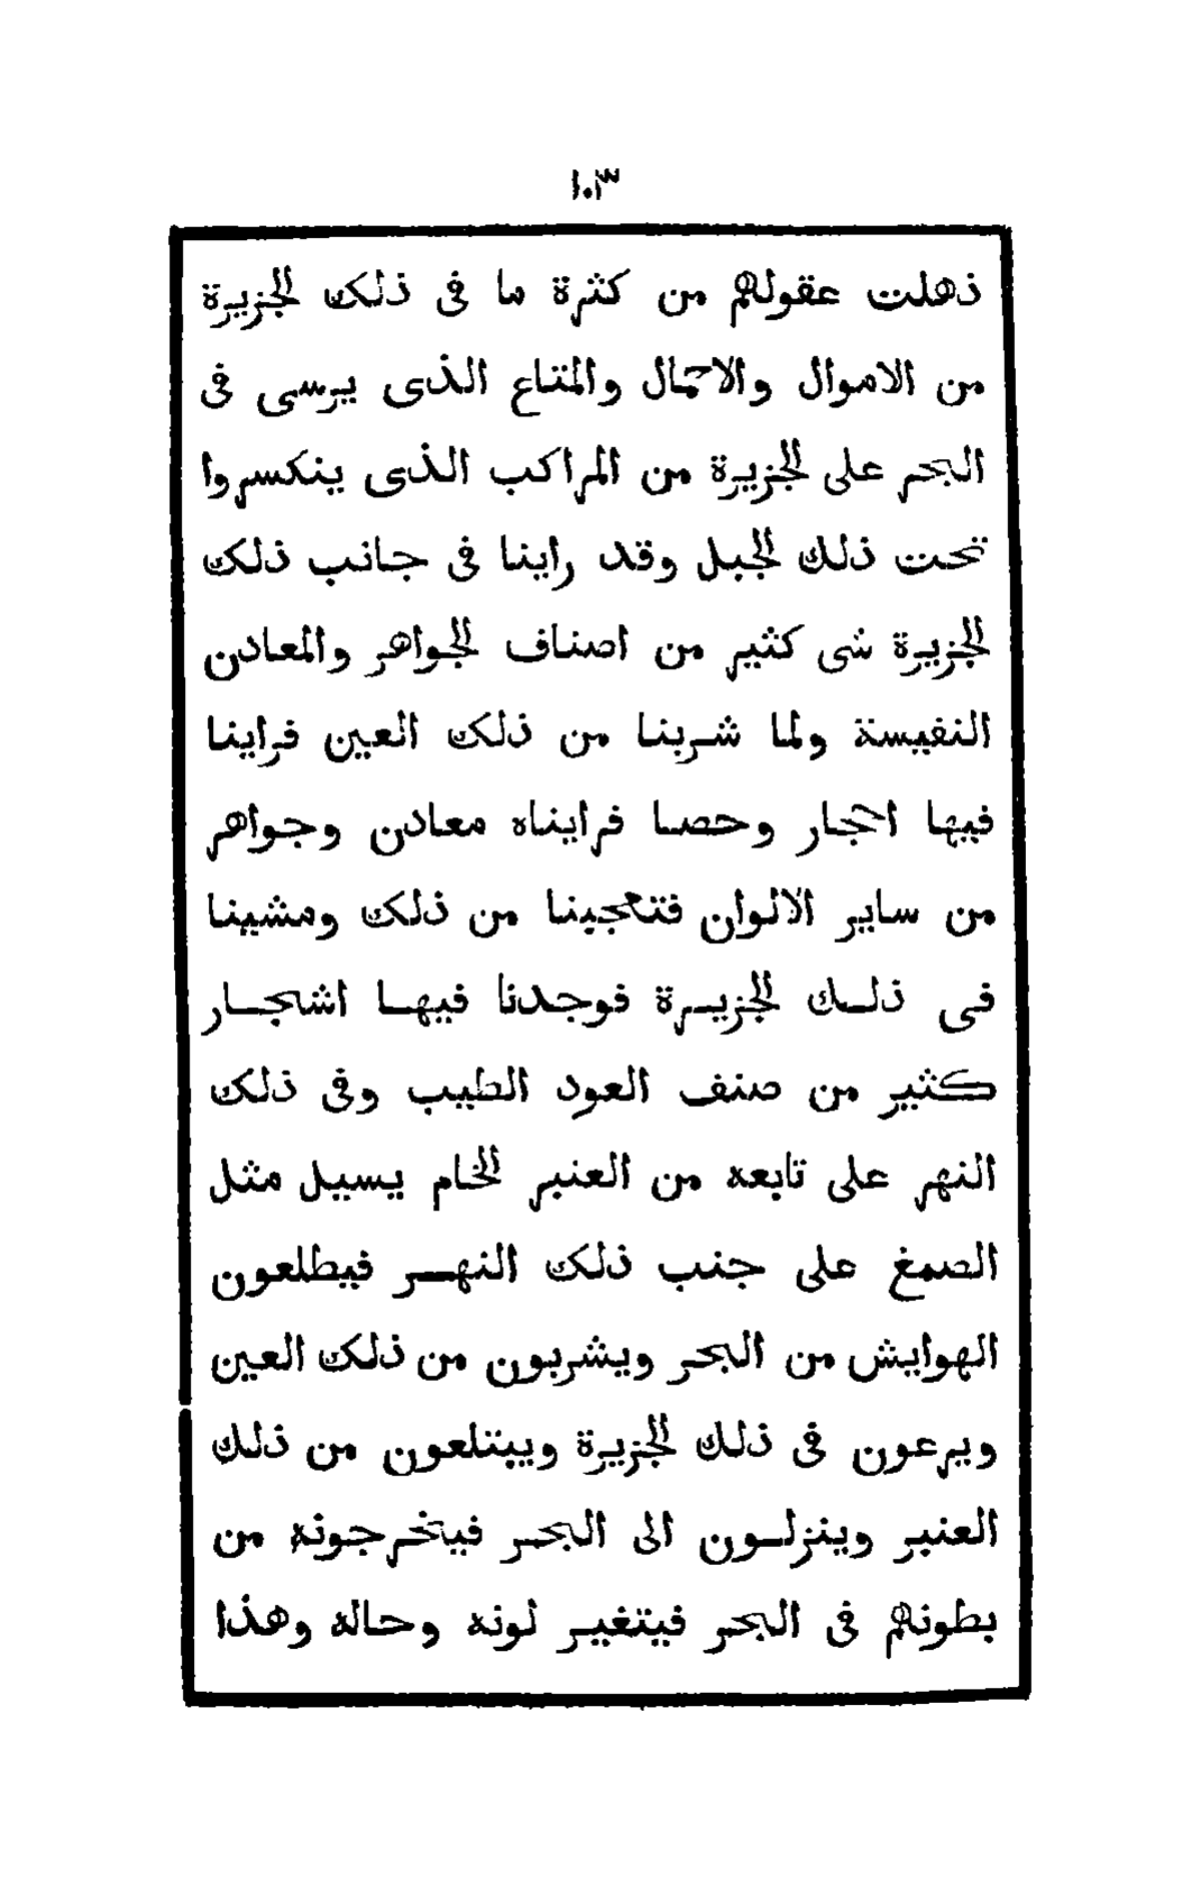 ١٠٣
ذهلت عقولهم من كثرة ما فى ذلك الجزيرة
من الاموال والاحمال والمتاع الذى يرسى فى
البحر على الجزيرة من المراكب الذى ينكسروا
تحت ذلك الجبل وقد راينا فى جانب ذلك
الجزيرة شى كثير من اصناف الجواهر والمعادن
النفيسة ولما شربنا من ذلك العين فراينا
فيها احجار وحصا فرايناه معادن وجواهر
من ساير الالوان فتعجبنا من ذلك ومشينا
فى ذلك الجزيرة فوجدنا فيها اشجار
كثير من صنف العود الطيب وفى ذلك
النهر على تابعه من العنبر الخام يسيل مثل
الصمغ على جنب ذلك النهر فيطلعون
الهوايش من البحر ويشربون من ذلك العين
ويرعون فى ذلك الجزيرة ويبتلعون من ذلك
العنبر وينزلون الى البحر فيخرجونه من
بطونهم فى البحر فيتغير لونه وحاله وهذا